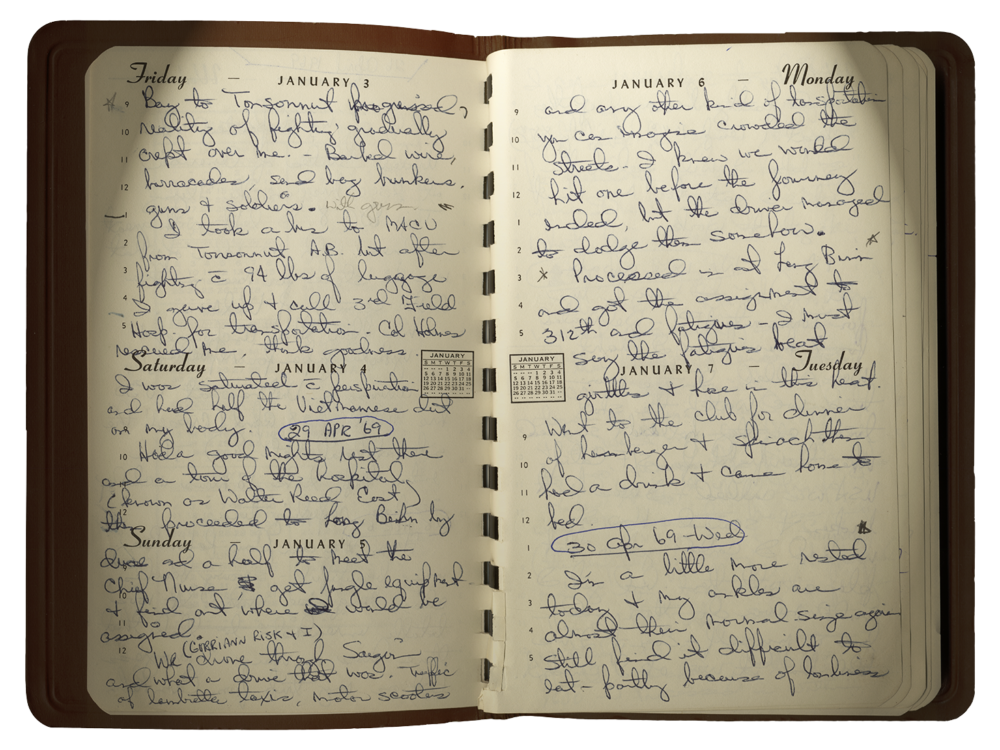 Friday — JANUARY 3
9 Bay to Tonsonnut progressed,
10 reality of fighting gradually
11 crept over me. - Barbed wire,
12 barracades, sand bag bunkers.
guns & soldiers. with guns.
1 I took a bus to MACV
2 from Tonsonnut A.B. but after
3 fighting c̄ 94 lbs of luggage
4 I gave up & call 3rd Field
5 Hosp. for transportation. Col
rescued me, thank goodness.
Saturday — JANUARY 4
JANUARY
S M T W T F S
I was saturated c̄ perspiration
and had half the Vietnamese dirt
on my body. 29 APR '69
10 Had a good nights rest there
and a tour of the hospital
(known as Walter Reed East)
12 then proceeded to Long Beihn by
Sunday — JANUARY 5
and a half to meet the
Chief Nurse & get jungle equipment
& find out where would be
11 assigned.
12 We (GERRIANN RISK & I) drove through Saigon
and what a drive that was. Traffic
of lambretta taxis, motor scooters
JANUARY 6 — Monday
9 and any other kind of transportation
10 you can imagine crowded the
11 streets. I knew we would
12 hit one before the journey
1 ended, but the driver managed
2 to dodge them somehow.
3 x Processed in at Long Binn
4 and got the assignment to
5 312th and fatigues - I must
say the fatigues beat
JANUARY 7 — Tuesday
JANUARY
S M T W T F S
girdles & hose in this heat.
9 Went to the club for dinner
10 of hamburger & spinach then
11 had a drink & came home to
12 bed.
1 30 Apr '69 - Wed
2 I'm a little more rested
3 today & my ankles are
4 almost their normal size again
5 Still find it difficult to
eat - partly because of loneliness